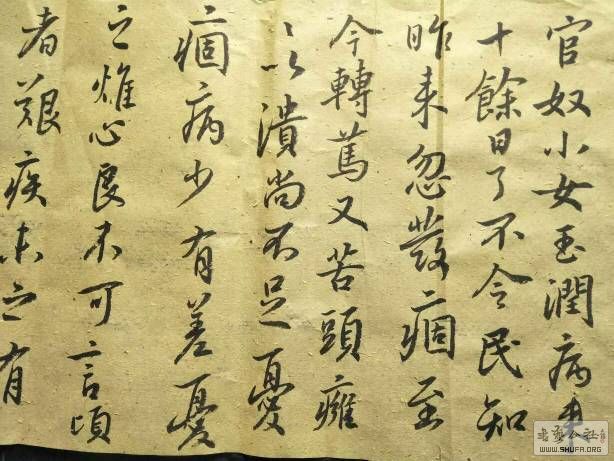 官奴小女玉潤病来
十餘日了不令民知
昨来忽發痼至
今轉篤又苦頭癰
以潰尚不足憂
痼病少有差憂
之燋心良不可言頃
者艱疾未之有
書藝公社
WWW.SHUFA.ORG